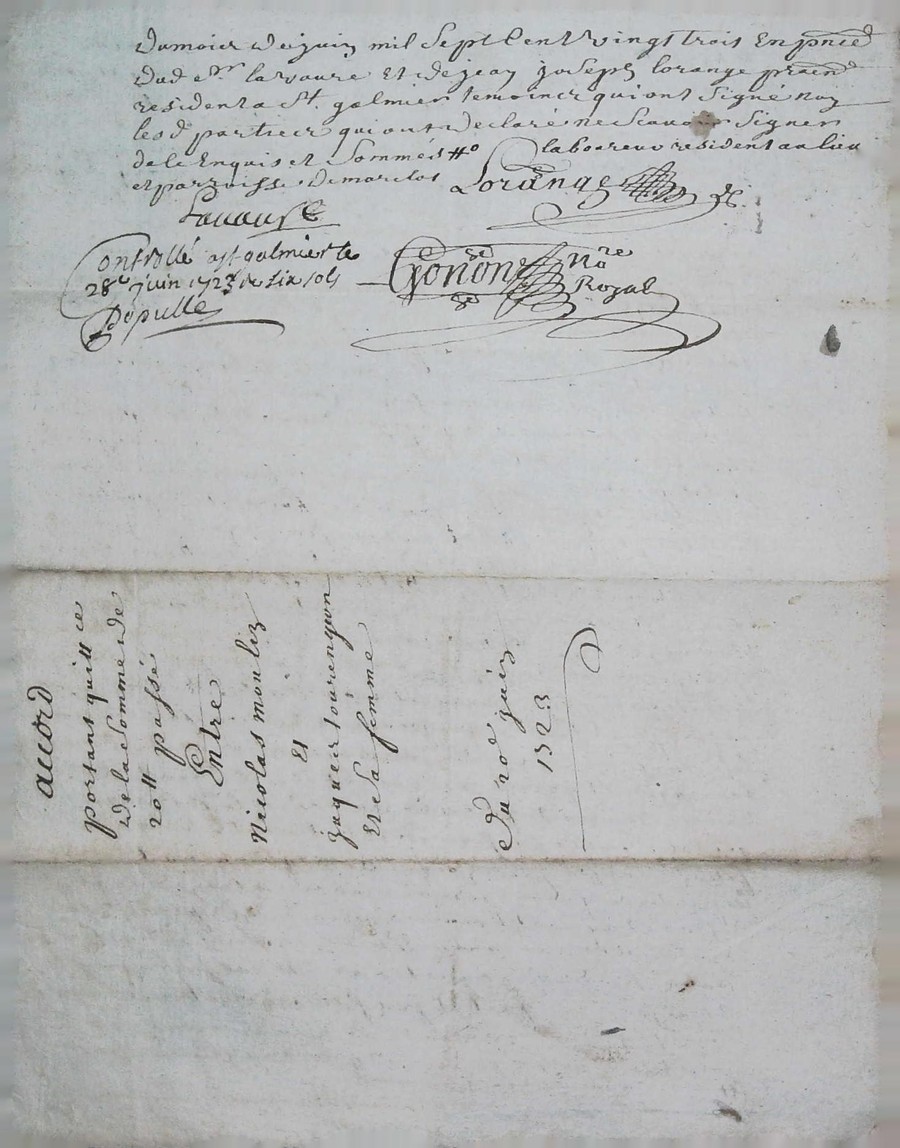 du mois de juin mil sept cent vingt trois En pnce
dud sr lavaure Et de jean joseph lorange praen
resident a St galmier temoincz qui ont signé non
les d partiecz qui ont declaré ne scavoir signer
de ce Enquis et sommés #° laboureur resident au lieu
et parroisse de marclos Lorange
Lavaure
Controllé a st galmier le
28e juin 1723 r six sols
Depullé
Gonon
nre
Royal
acord
portant quittce
de la somme de
20 tt passé
Entre
Nicolas mouliz
Et
jaques tourengeon
Et sa femme
du 20e juin
1723